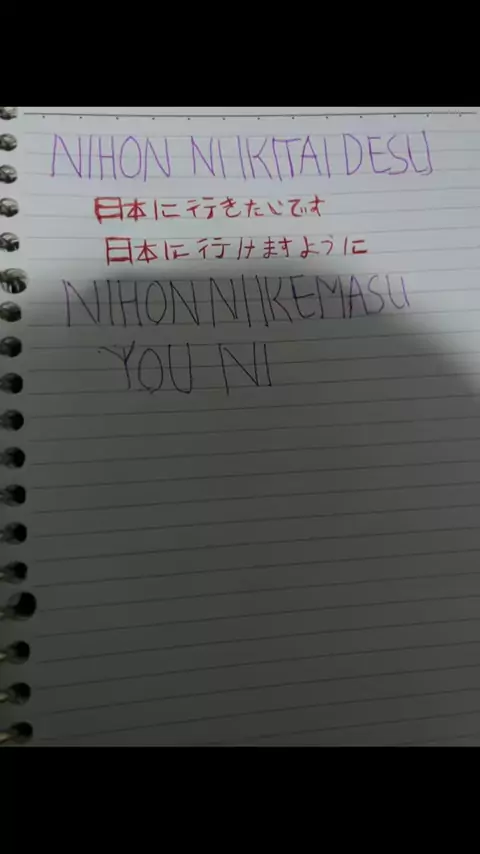 NIHON NI IKITAI DESU
日本に行きたいです
日本に行けますように
NIHON NI IKEMASU
YOU NI